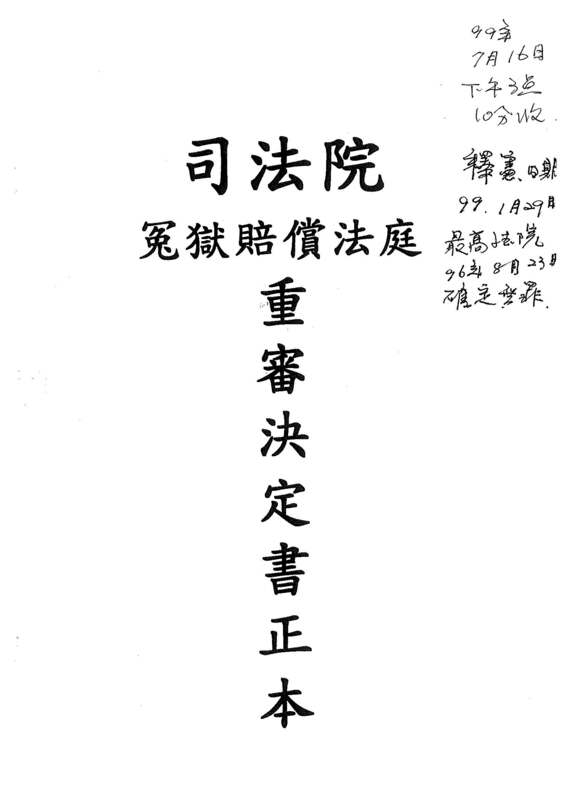 99年
7月16日
下午3点
10分收.
釋憲日期
99.1月29日
最高法院
96年8月23日
確定無罪.
司法院
冤獄賠償法庭
重審決定書正本